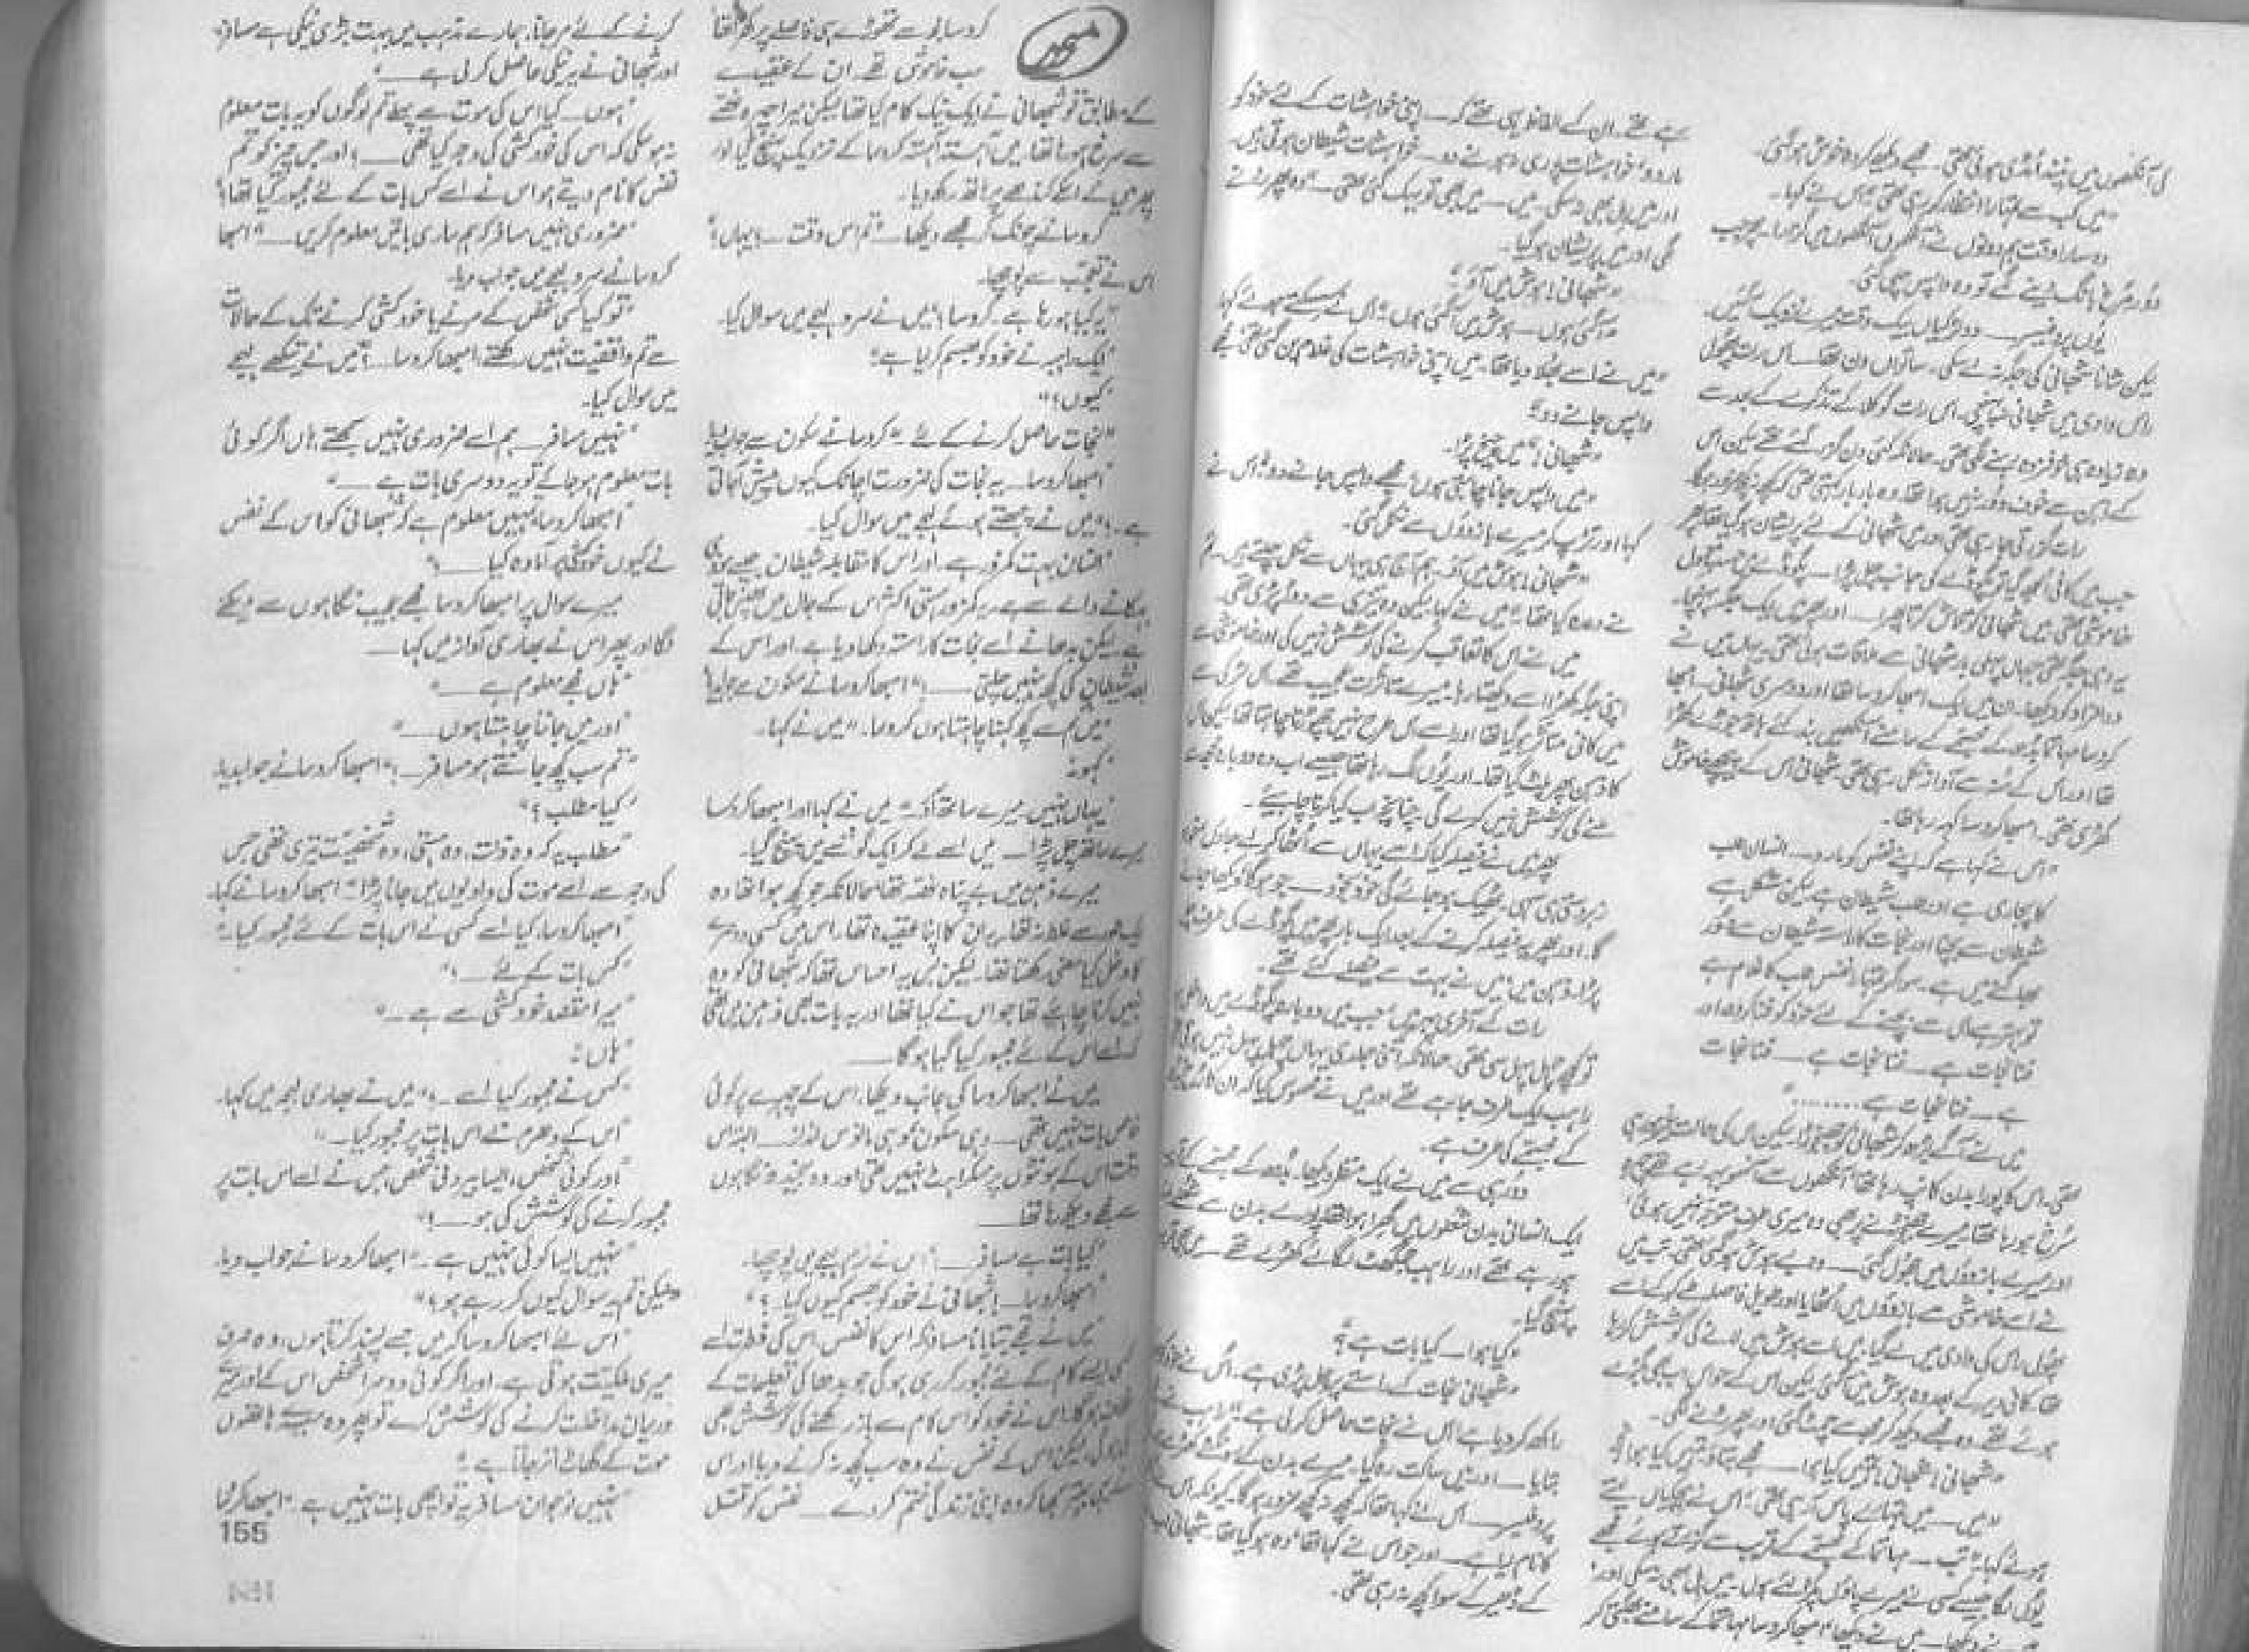 کی آنکھوں میں نیند اُمڈی ہوئی تھی۔ مجھے دیکھ کر وہ خوش ہوگئی۔
"میں کب سے تمہارا انتظار کر رہی تھی" اس نے کہا۔
وہ سارا وقت ہم دونوں نے آنکھوں آنکھوں میں گزارا۔ پھر جب
دُور مرغ بانگ دینے لگے تو وہ واپس چلی گئی۔
یُوں پروفیسر — دو لڑکیاں بیک وقت میرے نزدیک تھیں۔
لیکن شانا شبھانی کی جگہ نہ لے سکی۔ ساتواں دن تھا۔ اس رات پھولی
راس وادی میں شبھانی نہ پہنچی۔ اس رات گوکلا کے تذکرے کے بعد سے
وہ زیادہ ہی خوفزدہ رہنے لگی تھی۔ حالانکہ کئی دن گزر گئے تھے لیکن اس
کے ذہن سے خوف دُور نہیں ہوا تھا، وہ بار بار کہتی تھی کہ کچھ نہ کچھ ضرور ہوگا
رات گزرتی جا رہی تھی اور میں شبھانی کے لئے پریشان ہوگیا تھا، پھر
جب میں کافی اُلجھ گیا تو پگوڈے کی جانب چل پڑا — پگوڈے میں حسب معمول
خاموشی تھی، میں شبھانی کو تلاش کرتا پھرا — اور پھر میں ایک جگہ پہنچا۔
یہ وہی جگہ تھی جہاں پہلی بار شبھانی سے ملاقات ہوئی تھی، یہاں میں نے
دو افراد کو دیکھا۔ ان میں ایک امبھا کروسا تھا اور دوسری شبھانی — امبھا
کروسا مہاتما بُدھ کے مجسمے کے سامنے آنکھیں بند کئے ہاتھ جوڑے کھڑا
تھا اور اس کے منہ سے آواز نکل رہی تھی۔ شبھانی اس کے پیچھے خاموش
کھڑی تھی۔ امبھا کروسا کہہ رہا تھا۔
"اس نے کہا ہے کہ اپنے نفس کو مار دو — انسان جب
کا پجاری ہے اور جب شیطان ہے لیکن مشکل ہے
شیطان سے بچنا اور نجات کا راستہ شیطان سے دُور
بھاگنے میں ہے۔ سو اگر تمہارا نفس جب کا غلام ہے
تو بہتر ہے اس سے بچنے کے لئے خود کو فنا کر دو، اور
فنا نجات ہے — فنا نجات ہے — فنا نجات
ہے — فنا نجات ہے ........"
میں نے آگے بڑھ کر شبھانی کو جھنجوڑا لیکن اس کی حالت غیر ہو رہی
تھی۔ اس کا پورا بدن کانپ رہا تھا، آنکھوں سے آنسو بہہ رہے تھے، چہرہ
سُرخ ہو رہا تھا، میرے جھنجوڑنے پر بھی وہ میری طرف متوجہ نہیں ہوئی،
اور میرے بازوؤں میں جھول گئی — وہ بے ہوش ہوگئی تھی، تب میں
نے اسے خاموشی سے بازوؤں میں اُٹھایا اور طویل فاصلہ طے کر کے اسے
پھولی راس کی وادی میں لے گیا، میں اسے ہوش میں لانے کی کوشش کر رہا
تھا۔ کافی دیر کے بعد وہ ہوش میں آ گئی لیکن اس کے حواس اب بھی بگڑے
ہوئے تھے۔ وہ مجھے دیکھ کر مجھ سے چمٹ گئی اور پھر رونے لگی۔
"شبھانی! شبھانی! تمہیں کیا ہوا — مجھے بتاؤ تمہیں کیا ہوا؟"
"میں — میں تمہارے پاس آ رہی تھی" اس نے ہچکیاں لیتے
ہوئے کہا "تب — مہاتما کے مجسمے کے قریب سے گزرتے ہوئے مجھے
یُوں لگا جیسے کسی نے میرے پاؤں پکڑ لئے ہوں۔ میں ہل بھی نہ سکی اور
میں نے دیکھا — میں نے دیکھا، امبھا کروسا مہاتما کے سامنے جھکتی کر
رہے تھے، ان کے الفاظ یہی تھے کہ — اپنی خواہشات کے لئے خود کو
مار دو، خواہشات پوری نہ ہونے دو — خواہشات شیطان ہوتی ہیں۔
اور میں ہل بھی نہ سکی۔ میں — میں بھی تو بہک گئی تھی — " وہ پھر رونے
لگی اور میں پریشان ہوگیا۔
"شبھانی! ہوش میں آؤ۔"
"آگئی ہوں — ہوش میں آگئی ہوں" اس نے سسکتے ہوئے کہا
"میں نے اسے بھلا دیا تھا۔ میں اپنی خواہشات کی غلام بن گئی تھی مجھے
واپس جانے دو۔"
"شبھانی!" میں چیخ پڑا۔
"میں واپس جانا چاہتی ہوں، مجھے واپس جانے دو" اس نے
کہا اور تڑپ کر میرے بازوؤں سے نکل گئی۔
"شبھانی! ہوش میں آؤ۔ ہم آج ہی یہاں سے نکل چلتے ہیں۔ تم
نے وعدہ کیا تھا۔" میں نے کہا لیکن وہ تیزی سے دوڑ پڑی تھی۔
میں نے اس کا تعاقب کرنے کی کوشش نہیں کی اور خاموشی سے
اپنی جگہ کھڑا اسے دیکھتا رہا۔ میرے تاثرات عجیب تھے۔ اس لڑکی سے
میں کافی متاثر ہو گیا تھا اور اسے اس طرح نہیں چھوڑنا چاہتا تھا لیکن اس
کا ذہن پھر پلٹ گیا تھا۔ اور یُوں لگ رہا تھا جیسے اب وہ دوبارہ مجھ سے
ملنے کی کوشش نہیں کرے گی۔ چنانچہ اب کیا کرنا چاہیئے۔
پھر میں نے فیصلہ کیا کہ اسے یہاں سے اُٹھا کر لے جاؤں خواہ
زبردستی ہی سہی، ٹھیک ہو جائے گی خود بخود — جو ہوگا دیکھا جائے
گا۔ اور پھر یہ فیصلہ کرنے کے بعد ایک بار پھر میں پگوڈے کی طرف چل
پڑا۔ ذہن میں میں نے بہت سے فیصلے کئے تھے۔
رات کے آخری پہر میں جب میں دوبارہ پگوڈے میں داخل ہوا
تو کچھ چہل پہل سی تھی، حالانکہ اتنی جلدی یہاں چہل پہل نہیں ہوتی
راہب ایک طرف جا رہے تھے اور میں نے محسوس کیا کہ ان کا رُخ بُدھ
کے مجسمے کی طرف ہے۔
دُور ہی سے میں نے ایک منظر دیکھا۔ بُدھ کے مجسمے کے قریب
ایک انسانی بدن شعلوں میں گھرا ہوا تھا، پورے بدن سے شعلے
ہو رہے تھے اور راہب جمگھٹ لگائے کھڑے تھے۔ میں بھی قریب
پہنچ گیا۔
"کیا ہوا — کیا بات ہے؟"
"شبھانی نجات کے راستے پر چل پڑی ہے، اُس نے خود کو
راکھ کر دیا ہے، اس نے نجات حاصل کر لی ہے" راہب نے
بتایا — اور میں ساکت رہ گیا۔ میرے بدن کے
پروفیسر — اس نے کہا تھا کہ کچھ نہ کچھ ضرور ہوگا۔ کیونکہ اس نے
کا نام لیا ہے — اور جو اس نے کہا تھا، وہ ہو گیا تھا۔ شبھانی اب
کے ڈھیر کے سوا کچھ نہ رہی تھی۔
منجمد
کروسا مجھ سے تھوڑے ہی فاصلے پر کھڑا تھا
سب خاموش تھے۔ ان کے عقیدے
کے مطابق تو شبھانی نے ایک نیک کام کیا تھا لیکن میرا چہرہ غصّے
سے سرخ ہو رہا تھا، میں آہستہ آہستہ کروسا کے نزدیک پہنچ گیا اور
پھر میں نے اسکے کندھے پر ہاتھ رکھ دیا۔
کروسا نے چونک کر مجھے دیکھا — "تم اس وقت — یہاں؟"
اس نے تعجب سے پوچھا۔
"یہ کیا ہو رہا ہے۔ کروسا" میں نے سرد لہجے میں سوال کیا۔
"ایک راہبہ نے خود کو بھسم کر لیا ہے"
"کیوں؟"
"نجات حاصل کرنے کے لئے" کروسا نے سکون سے جواب دیا۔
"امبھا کروسا — یہ نجات کی ضرورت اچانک کیوں پیش آ جاتی
ہے —؟" میں نے چبھتے ہوئے لہجے میں سوال کیا۔
"انسان بہت کمزور ہے۔ اور اس کا مقابلہ شیطان جیسے
بہکانے والے سے ہے، یہ کمزور ہستی اکثر اس کے جال میں پھنس جاتی
ہے۔ لیکن بدھا نے اسے نجات کا راستہ دکھا دیا ہے۔ اور اس کے
بعد شیطان کی کچھ نہیں چلتی —" امبھا کروسا نے سکون سے جواب دیا
"میں تم سے کچھ کہنا چاہتا ہوں کروسا۔" میں نے کہا۔
"کہو"
"یہاں نہیں میرے ساتھ آؤ۔" میں نے کہا اور امبھا کروسا
میرے ساتھ چل پڑا — میں اسے لے کر ایک گوشے میں پہنچ گیا۔
میرے ذہن میں بے پناہ غصّہ تھا حالانکہ جو کچھ ہوا تھا وہ
ایک طور سے غلط نہ تھا۔ یہ ان کا اپنا عقیدہ تھا، اس میں کسی دوسرے
کا دخل کیا معنی رکھتا تھا۔ لیکن بس یہ احساس تھا کہ شبھانی کو وہ
نہیں کرنا چاہیے تھا جو اس نے کیا تھا اور یہ بات بھی ذہن میں تھی
کہ اسے اس کے لئے مجبور کیا گیا ہوگا —
میں نے امبھا کروسا کی جانب دیکھا، اس کے چہرے پر کوئی
خاص بات نہیں تھی — وہی سکون جو وہی مانوس انداز — البتہ اس
وقت اس کے ہونٹوں پر مسکراہٹ نہیں تھی اور وہ سنجیدہ نگاہوں
سے مجھے دیکھ رہا تھا —
"کیا بات ہے مسافر —" اس نے نرم لہجے میں پوچھا۔
"امبھا کروسا — شبھانی نے خود کو بھسم کیوں کیا —؟"
"میں نے تجھے بتایا نا مسافر کہ اس کا نفس، اس کی فطرت اسے
کسی ایسے کام کے لئے مجبور کر رہی ہوگی جو بدھا کی تعلیمات کے
خلاف ہوگا، اس نے خود کو اس کام سے باز رکھنے کی کوشش بھی
کی ہوگی لیکن اس کے نفس نے وہ سب کچھ نہ کرنے دیا اور اس
نے یہی بہتر سمجھا کہ وہ اپنی زندگی ختم کر دے — نفس کو قتل
کرنے کے لئے مر جانا، ہمارے مذہب میں بہت بڑی نیکی ہے مسافر،
اور شبھانی نے یہ نیکی حاصل کر لی ہے —"
"ہوں — کیا اس کی موت سے پہلے تم لوگوں کو یہ بات معلوم
نہ ہو سکی کہ اس کی خودکشی کی وجہ کیا تھی —؟ اور جس چیز کو تم
نفس کا نام دیتے ہو اس نے اسے کس بات کے لئے مجبور کیا تھا؟"
"ضروری نہیں مسافر کہ ہم ساری باتیں معلوم کریں —" امبھا
کروسا نے سرد لہجے میں جواب دیا۔
"تو کیا کسی شخص کے مرنے یا خودکشی کرنے تک کے حالات
سے تم واقفیت نہیں رکھتے، امبھا کروسا —؟" میں نے تیکھے لہجے
میں سوال کیا۔
"نہیں مسافر — ہم اسے ضروری نہیں سمجھتے، ہاں اگر کوئی
بات معلوم ہو جائے تو یہ دوسری بات ہے —"
"امبھا کروسا، تمہیں معلوم ہے کہ شبھانی کو اس کے نفس
نے کیوں خودکشی پر آمادہ کیا —؟"
میرے سوال پر امبھا کروسا مجھے عجیب نگاہوں سے دیکھنے
لگا اور پھر اس نے بھاری آواز میں کہا —
"ہاں مجھے معلوم ہے —"
"اور میں جاننا چاہتا ہوں —"
"تم سب کچھ جانتے ہو مسافر —" امبھا کروسا نے جواب دیا۔
"کیا مطلب؟"
"مطلب یہ کہ وہ ذات، وہ ہستی، وہ شخصیّت تیری تھی جس
کی وجہ سے اسے موت کی وادیوں میں جانا پڑا" امبھا کروسا نے کہا۔
"امبھا کروسا، کیا اسے کسی نے اس بات کے لئے مجبور کیا —"
"کس بات کے لئے —؟"
"میرا مقصد خودکشی سے ہے —"
"ہاں"
"کس نے مجبور کیا اسے —" میں نے بھاری لہجہ میں کہا۔
"اس کے دھرم نے اس بات پر مجبور کیا —"
"اور کوئی شخص، ایسا بیرونی شخص جس نے اسے اس بات پر
مجبور کرنے کی کوشش کی ہو —؟"
"نہیں ایسا کوئی نہیں ہے —" امبھا کروسا نے جواب دیا۔
"لیکن تم یہ سوال کیوں کر رہے ہو؟"
"اس لئے امبھا کروسا کہ میں جسے پسند کرتا ہوں، وہ صرف
میری ملکیت ہوتی ہے۔ اور اگر کوئی دوسرا شخص اس کے اور میرے
درمیان مداخلت کرنے کی کوشش کرے تو پھر وہ میرے ہاتھوں
موت کے گھاٹ اتر جاتا ہے"
"نہیں نوجوان مسافر یہ تو اچھی بات نہیں ہے —" امبھا کروسا
155